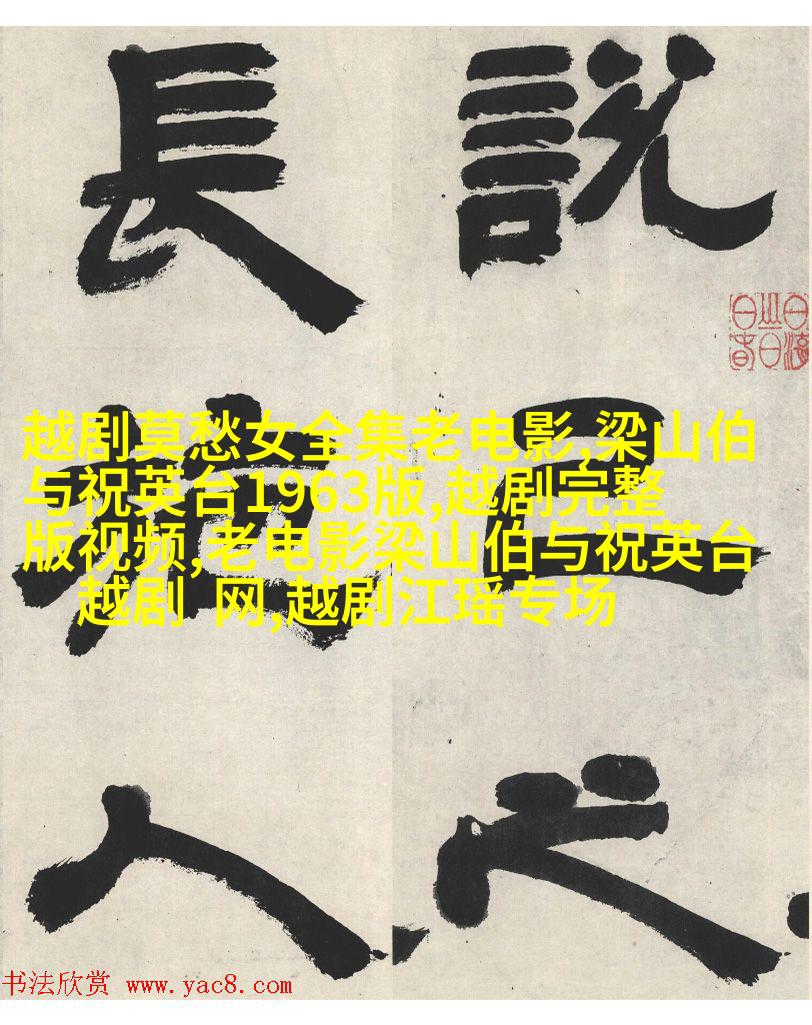 說己之
長施人
越剧莫愁女全集老电影,梁山伯
与祝英台1963版,越剧完整
版视频,老电影梁山伯与祝英台
越剧 网,越剧江瑶专场
书法欣赏 www.yac8.com